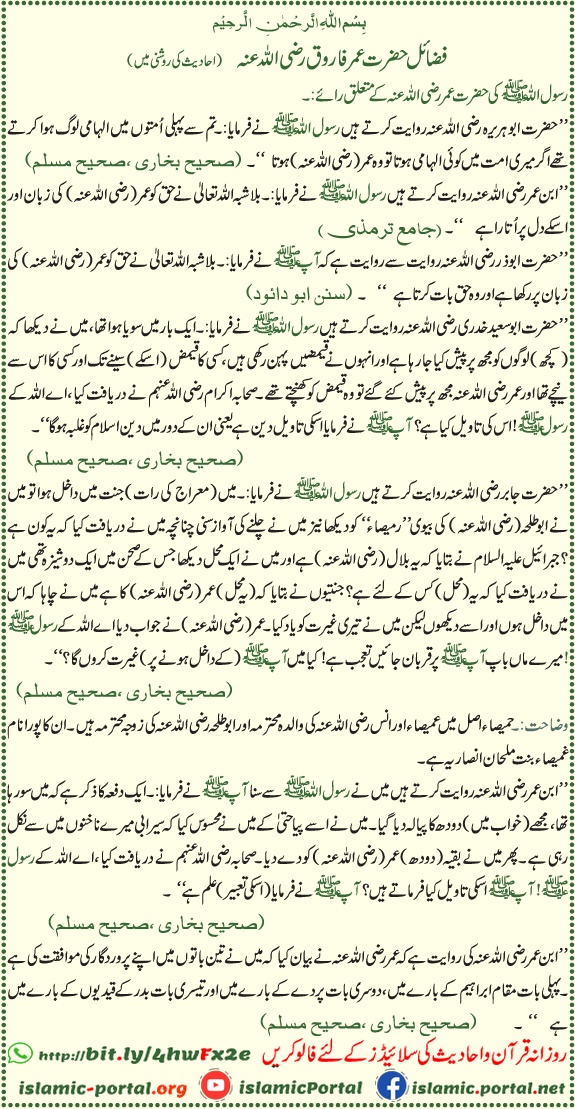 بِسْمِ اللهِ الرَّحْمٰنِ الرَّحِيْمِ
فضائل حضرت عمر فاروق رضی اللہ عنہ (احادیث کی روشنی میں)
رسول اللہ ﷺ کی حضرت عمر رضی اللہ عنہ کے متعلق رائے:۔
’’حضرت ابو ہریرہ رضی اللہ عنہ روایت کرتے ہیں رسول اللہ ﷺ نے فرمایا:۔تم سے پہلی اُمتوں میں الہامی لوگ ہوا کرتے
تھے اگر میری امت میں کوئی الہامی ہوتا تو وہ عمر (رضی اللہ عنہ) ہوتا ‘‘۔ (صحیح بخاری ،صحیح مسلم)
’’ابن عمر رضی اللہ عنہ روایت کرتے ہیں رسول اللہ ﷺ نے فرمایا:۔ بلاشبہ اللہ تعالیٰ نے حق کو عمر (رضی اللہ عنہ) کی زبان اور
اسکے دل پر اُتارا ہے ‘‘۔ (جامع ترمذی)
’’حضرت ابوذر رضی اللہ عنہ روایت سے روایت ہے کہ آپ ﷺ نے فرمایا:۔ بلاشبہ اللہ تعالیٰ نے حق کو عمر (رضی اللہ عنہ) کی
زبان پر رکھا ہے اور وہ حق بات کرتا ہے ‘‘ ۔ (سنن ابو دائود)
’’حضرت ابو سعید خدری رضی اللہ عنہ روایت کرتے ہیں رسول اللہ ﷺ نے فرمایا:۔ ایک بار میں سویا ہوا تھا، میں نے دیکھا کہ
(کچھ) لوگوں کو مجھ پر پیش کیا جا رہا ہے اور انہوں نے قمیضیں پہن رکھی ہیں، کسی کا قیمض (اسکے) سینے تک اور کسی کا اس سے
نیچے تھا اور عمر رضی اللہ عنہ مجھ پر پیش کئے گئے تو وہ قمیض کو کھینچتے تھے۔ صحابہ اکرام رضی اللہ عنہم نے دریافت کیا، اے اللہ کے
رسول ﷺ! اس کی تاویل کیا ہے؟ آپ ﷺ نے فرمایا اسکی تاویل دین ہے یعنی ان کے دور میں دین اسلام کو غلبہ ہو گا‘‘۔
(صحیح بخاری ،صحیح مسلم)
’’حضرت جابر رضی اللہ عنہ روایت کرتے ہیں رسول اللہ ﷺ نے فرمایا:۔ میں (معراج کی رات) جنت میں داخل ہوا تو میں
نے ابو طلحہ (رضی اللہ عنہ) کی بیوی’’رمیصاءُ‘‘ کو دیکھا نیز میں نے چلنے کی آواز سنی چنانچہ میں نے دریافت کیا کہ یہ کون ہے
؟ جبرائیل علیہ السلام نے بتایا کہ یہ بلال (رضی اللہ عنہ) ہے اور میں نے ایک محل دیکھا جس کے صحن میں ایک دوشیزہ تھی میں
نے دریافت کیا کہ یہ (محل) کس کے لئے ہے؟ جنتیوں نے بتایا کہ (یہ محل) عمر (رضی اللہ عنہ) کا ہے میں نے چاہا کہ اس
میں داخل ہوں اور اسے دیکھوں لیکن میں نے تیری غیرت کو یاد کیا۔ عمر (رضی اللہ عنہ) نے جواب دیا اے اللہ کے رسول ﷺ
! میرے ماں باپ آپ ﷺ پر قربان جائیں تعجب ہے! کیا میں آپ ﷺ (کے داخل ہونے پر) غیرت کروں گا؟‘‘۔
(صحیح بخاری ،صحیح مسلم)
وضاحت:۔ حمیصاء اصل میں عمیصاء اور انس رضی اللہ عنہ کی والدہ محترمہ اور ابو طلحہ رضی اللہ عنہ کی زوجہ محترمہ ہیں۔ ان کا پورا نام
غمیصاء بنت ملحان انصاریہ ہے۔
’’ابن عمر رضی اللہ عنہ روایت کرتے ہیں میں نے رسول اللہ ﷺ سے سنا آپ ﷺ نے فرمایا:۔ ایک دفعہ کا ذکر ہے کہ میں سو رہا
تھا، مجھے (خواب میں) دودھ کا پیالہ دیا گیا۔ میں نے اسے پیا حتیٰ کے میں نے محسوس کیا کہ سیرابی میرے ناخنوں میں سے نکل
رہی ہے۔ پھر میں نے بقیہ (دودھ) عمر (رضی اللہ عنہ) کو دے دیا۔ صحابہ رضی اللہ عنہم نے دریافت کیا، اے اللہ کے رسول
ﷺ! آپ ﷺ اسکی تاویل کیا فرماتے ہیں؟ آپ ﷺ نے فرمایا (اسکی تعبیر) علم ہے‘‘ ۔
(صحیح بخاری ،صحیح مسلم)
’’ابن عمر رضی اللہ عنہ کی روایت ہے کہ عمر رضی اللہ عنہ نے بیان کیا کہ میں نے تین باتوں میں اپنے پروردگار کی موافقت کی ہے
۔ پہلی بات مقام ابراہیم کے بارے میں، دوسری بات پردے کے بارے میں اور تیسری بات بدر کے قیدیوں کے بارے میں
ہے ‘‘ ۔ (صحیح بخاری ،صحیح مسلم)
روزانہ قرآن و احادیث کی سلائیڈز کے لئے فالو کریں http://bit.ly/4hwFx2e
islamic-portal.org islamicPortal islamic.portal.net